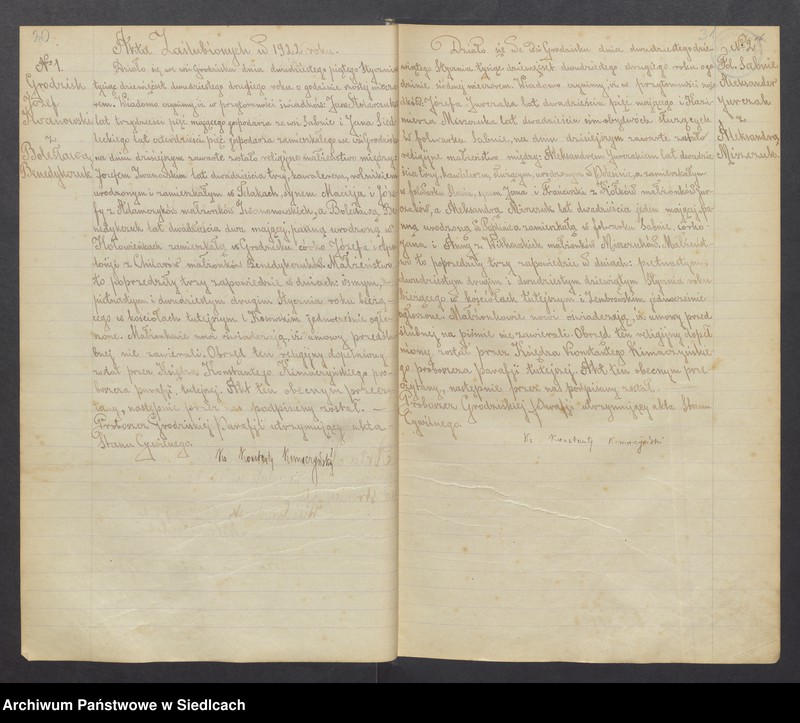 30.
Akta Zaślubionych w 1922 roku.
№ 1
Grodzisk
Józef
Iwanowski
z
Bolesławą
Benedykciuk
Działo się we wsi Grodzisku dnia dwudziestego piątego Stycznia
tysiąc dziewięćset dwudziestego drugiego roku o godzinie szóstej wieczo
rem. Wiadomo czynimy, iż w przytomności świadków Jana
lat trzydzieści pięć mającego gospodarza ze wsi Sabnie i Jana Sied
leckiego lat czterdzieści pięć gospodarza zamieszkałego we wsi Grodzisk
na dniu dzisiejszym zawarte zostało religijne małżeństwo między:
Józefem Iwanowskim lat dwadzieścia trzy, kawalerem, rolnikiem
urodzonym i zamieszkałym w synem Macieja i Józe
fy z małżonków a Bolesławą Be
nedykciuk lat dwadzieścia dwa mającej, panną urodzoną w
Hołowienkach zamieszkałą w Grodzisku córką Józefa i
z małżonków Benedykciuków. Małżeństwo
to poprzedziły trzy zapowiedzie w dniach: ósmym,
piętnastym i dwudziestym drugim Stycznia roku bieżą-
cego w kościołach tutejszym i Kosowskim jednocześnie ogło
szone. Małżonkowie nowi oświadczają, iż umowy przedślu
bnej nie zawierali. Obrzęd ten religijny dopełniony
został przez Księdza Konstantego Kimaczyńskiego pro-
boszcza parafji tutejszej. Akt ten obecnym przeczy-
tany, następnie przez nas podpisany został. —
Proboszcz Grodziskiej Parafji utrzymujący akta
Stanu Cywilnego.
Ks Konstanty Kimaczyński
№ 2
Fol. Sabnie
Aleksander
Jurczak
z
Aleksandrą
Miszczuk
Działo się we wsi Grodzisku dnia dwudziestego dzie-
wiątego Stycznia tysiąc dziewięćset dwudziestego drugiego roku o go
dzinie siódmej wieczorem. Wiadomo czynimy, iż w przytomności świa
dków Józefa Jurczaka lat dwadzieścia pięć mającego i Kazi
mierza Miszczuka lat dwadzieścia siedm obydwóch służących
w folwarku Sabnie, na dniu dzisiejszym zawarte zostało
religijne małżeństwo między: Aleksandrem Jurczakiem lat dwadzie
ścia trzy, kawalerem, służącym, urodzonym w a zamieszkałym
w folwarku Sabnie, synem Jana i Franciszki z małżonków Jur
czaków, a Aleksandrą Miszczuk lat dwadzieścia jeden mającej, pa
nną urodzoną w zamieszkałą w folwarku Sabnie, córką
Jana i Anny z małżonków Miszczuków. Małżeńst
wo to poprzedziły trzy zapowiedzie w dniach: piętnastym,
dwudziestym drugim i dwudziestym dziewiątym Stycznia roku
bieżącego w kościołach tutejszym i Zembrowskim jednocześnie
ogłoszone. Małżonkowie nowi oświadczają, iż umowy przed
ślubnej na piśmie nie zawierali. Obrzęd ten religijny dopeł
niony został przez Księdza Konstantego Kimaczyńskie-
go proboszcza Parafji tutejszej. Akt ten obecnym prze
czytany, następnie przez nas podpisany został.
Proboszcz Grodziskiej Parafji utrzymujący akta Stanu
Cywilnego.
Ks Konstanty Kimaczyński
Archiwum Państwowe w Siedlcach